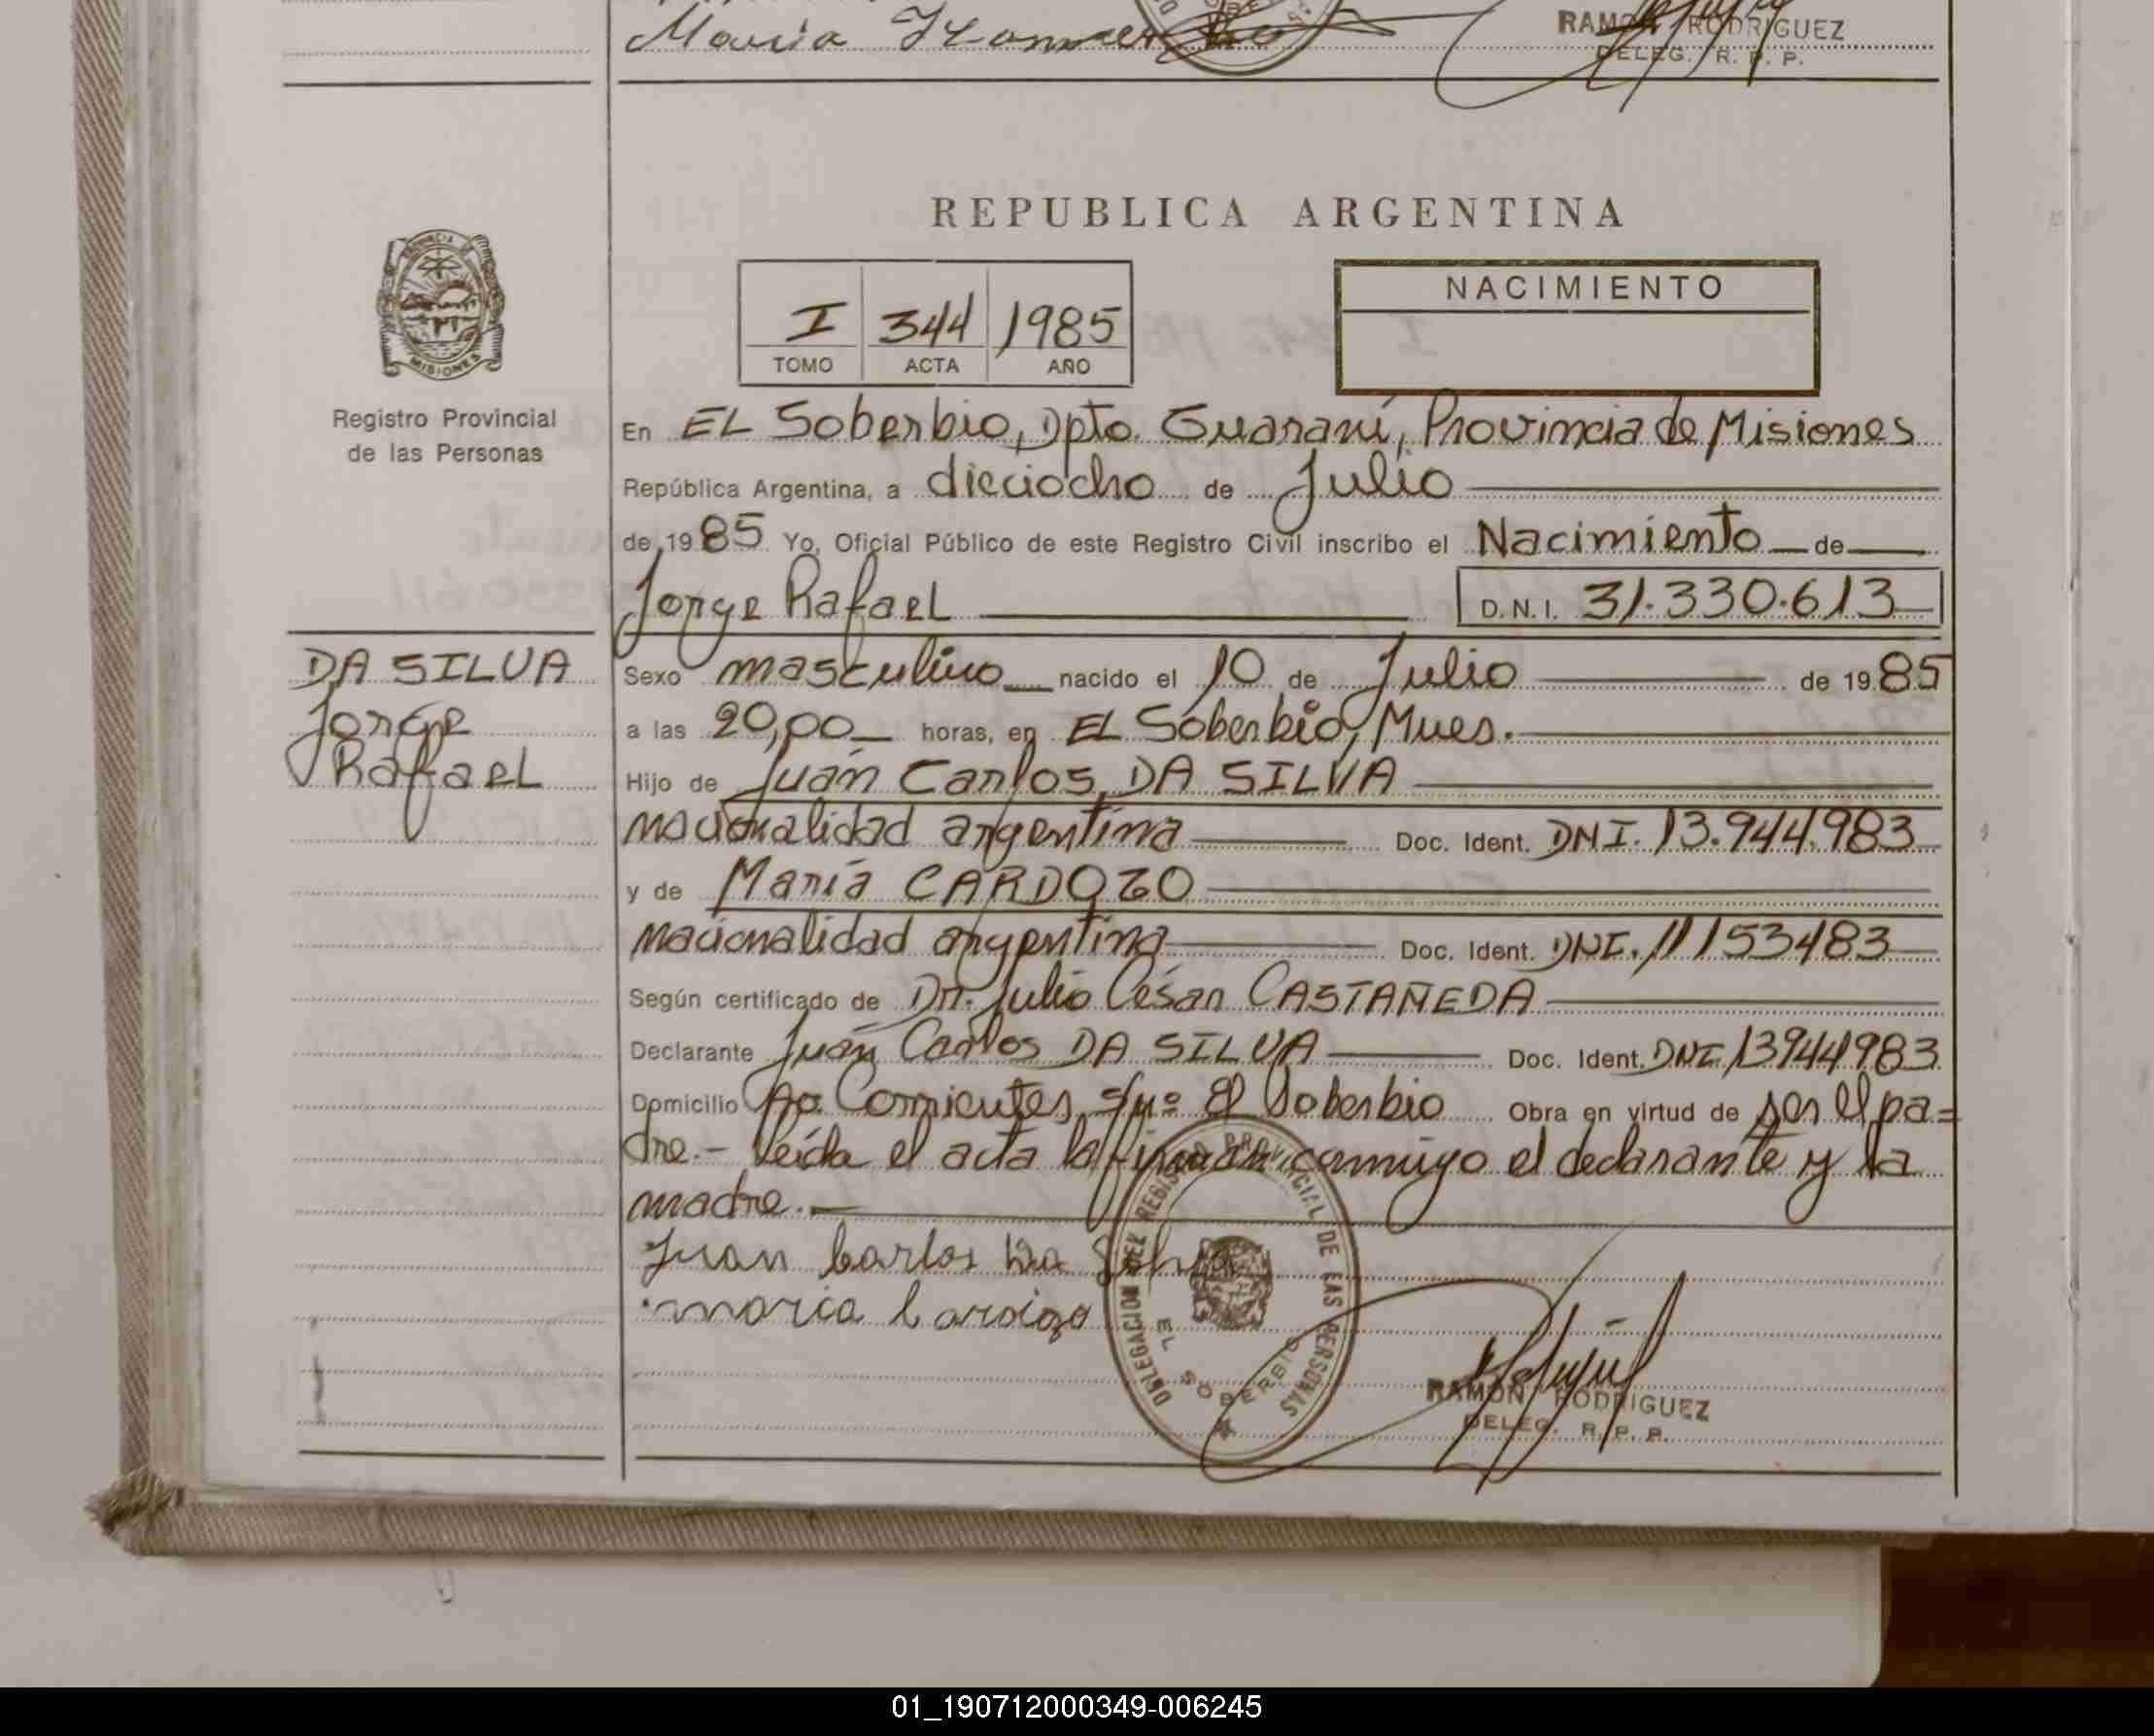 Maria
RAMON RODRIGUEZ
DELEG. R. P. P.
REPUBLICA ARGENTINA
PROVINCIA DE
MISIONES
Registro Provincial
de las Personas
I 344 1985
TOMO ACTA AÑO
NACIMIENTO
En EL Soberbio, Dpto. Guaraní, Provincia de Misiones
República Argentina, a dieciocho de Julio
de 1985 Yo, Oficial Público de este Registro Civil inscribo el Nacimiento de
Jorge Rafael D.N.I. 31.330.613
DA SILVA
Jorge
Rafael
Sexo masculino nacido el 10 de Julio de 1985
a las 20,00 horas, en EL Soberbio, Mnes.
Hijo de Juan Carlos DA SILVA
nacionalidad argentina Doc. Ident. DNI. 13.944.983
y de María CARDOZO
nacionalidad argentina Doc. Ident. DNI. 11153483
Según certificado de Dr. Julio César CASTAÑEDA
Declarante Juan Carlos DA SILVA Doc. Ident. DNI 13944983
Domicilio Av. Corrientes s/nº El Soberbio Obra en virtud de ser el pa=
dre.- Leída el acta la firman conmigo el declarante y la
madre.-
Juan Carlos Da Silva
maria Cardozo
DELEGACION DEL REGISTRO PROVINCIAL DE LAS PERSONAS
EL SOBERBIO
RAMON RODRIGUEZ
DELEG. R. P. P.
01_190712000349-006245